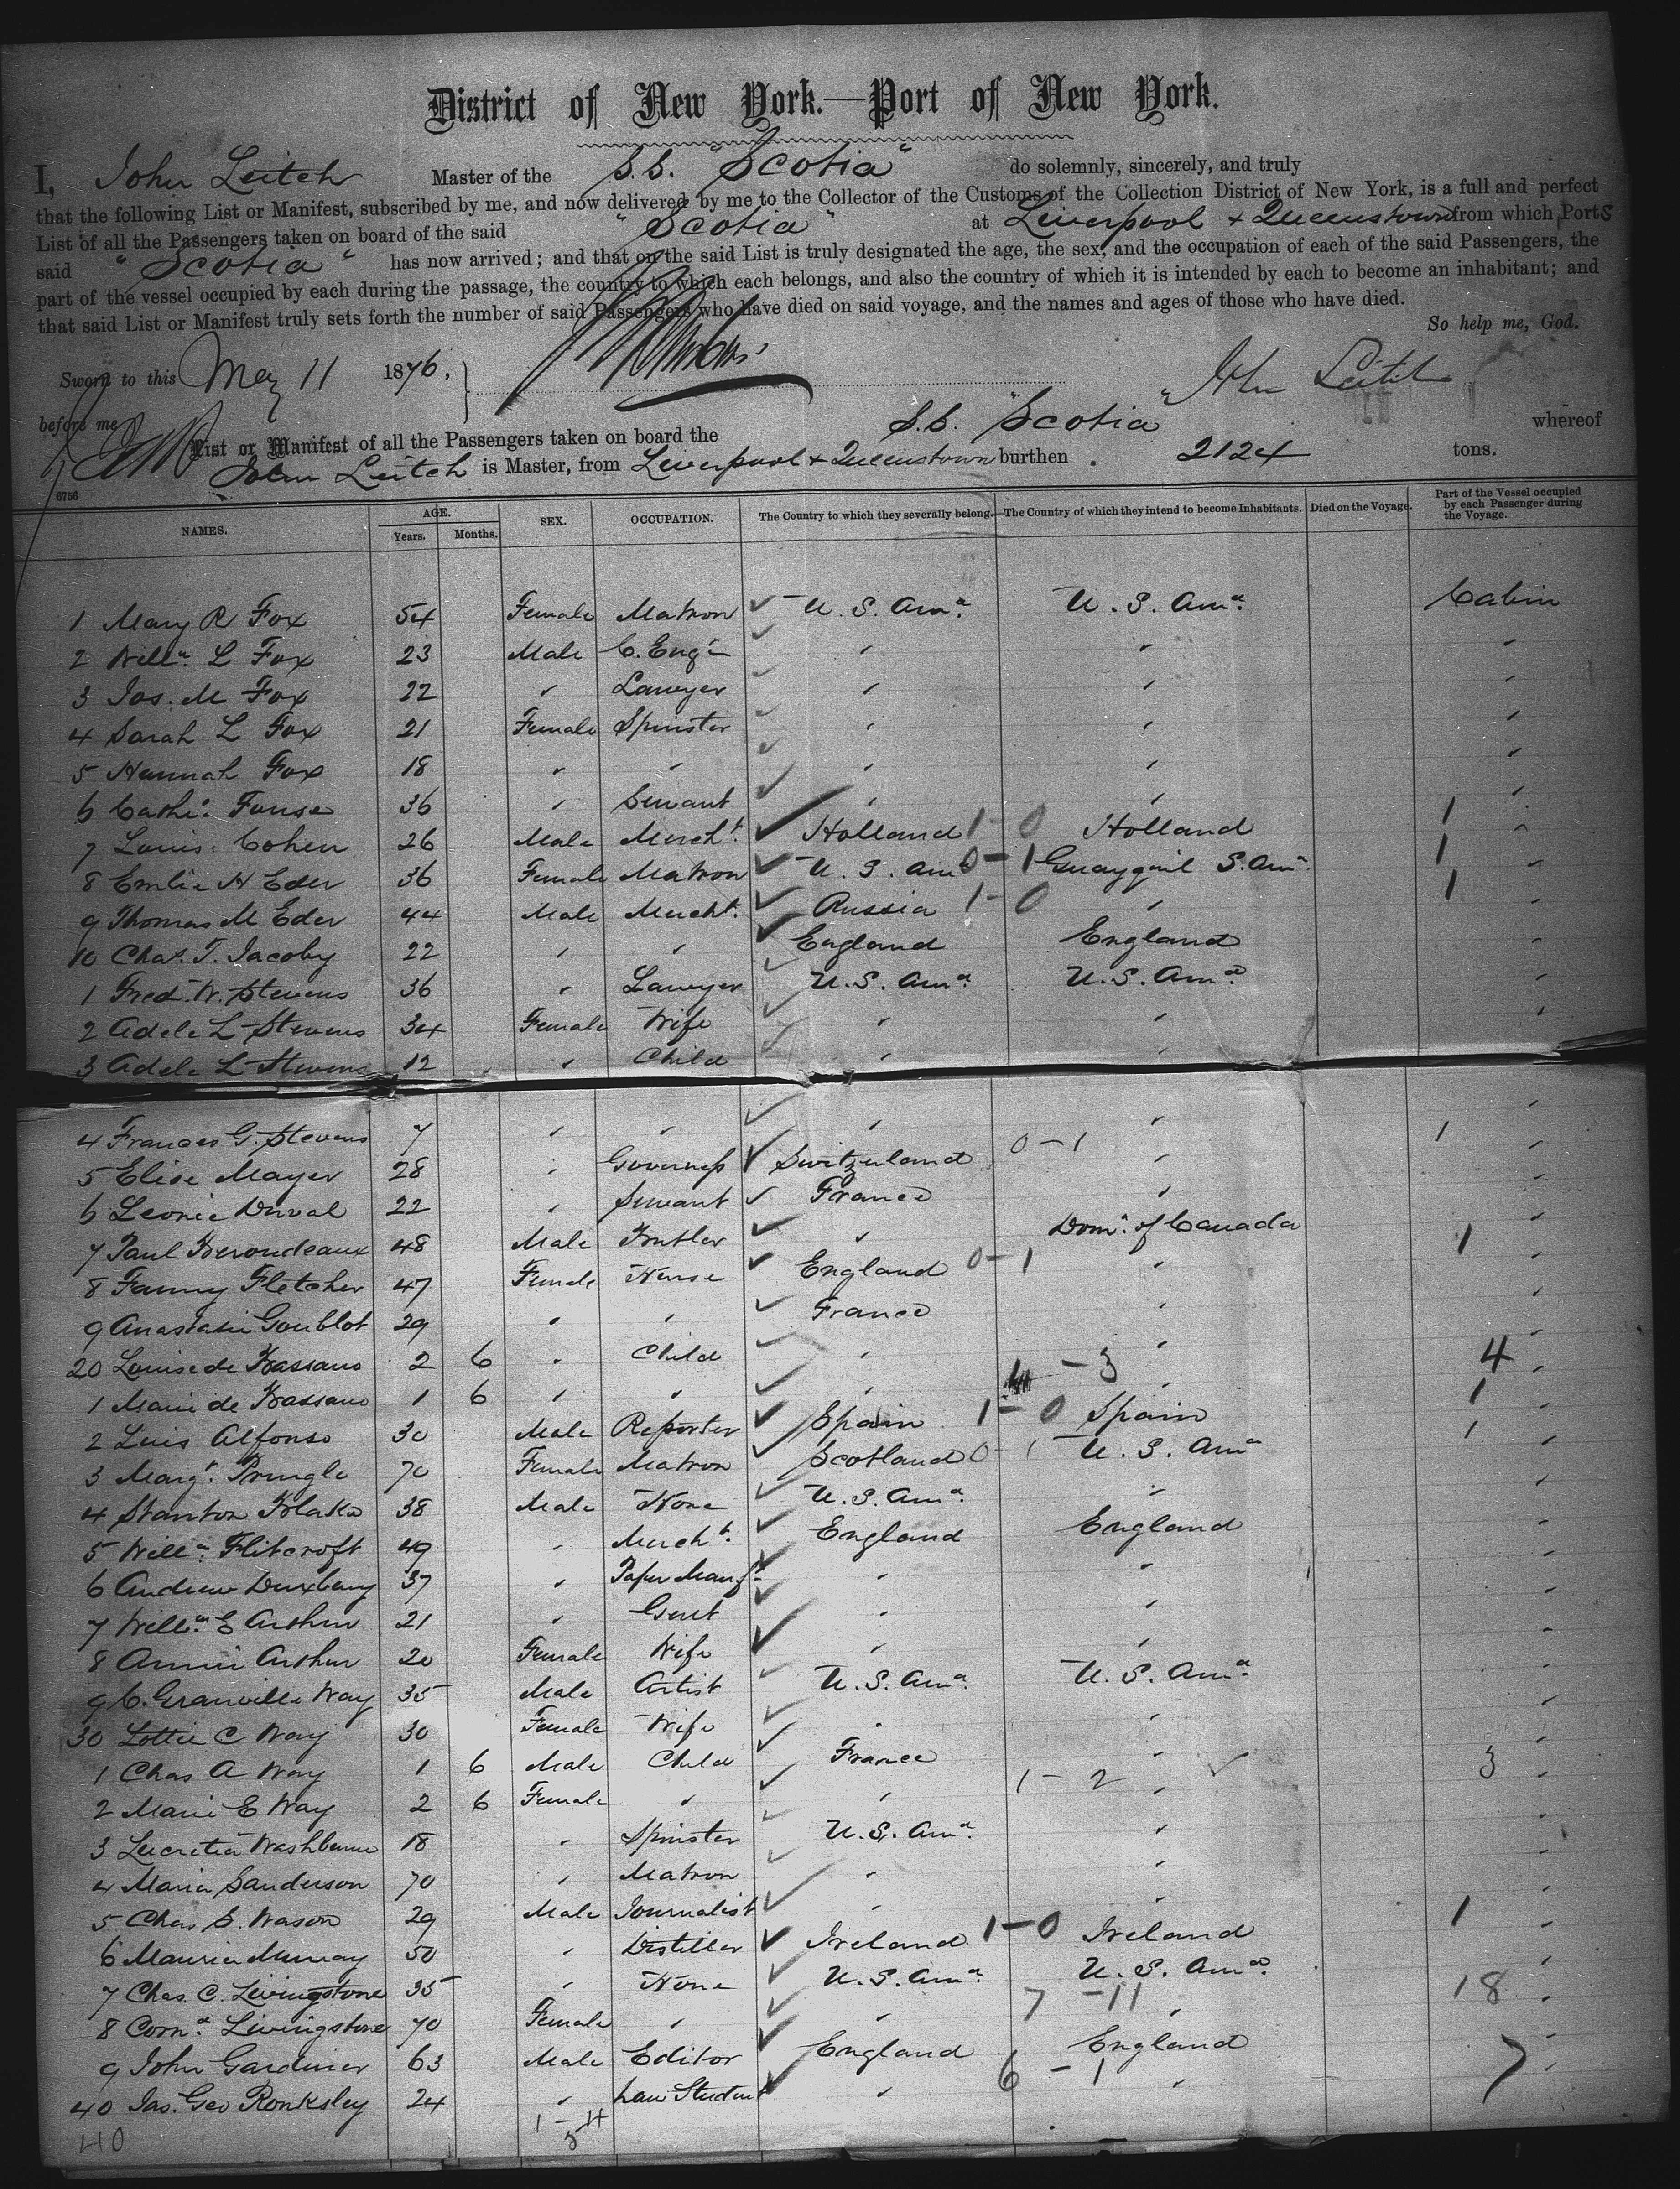 District of New York.—Port of New York.
I, John Leitch Master of the S.S. "Scotia" do solemnly, sincerely, and truly
that the following List or Manifest, subscribed by me, and now delivered by me to the Collector of the Customs of the Collection District of New York, is a full and perfect
List of all the Passengers taken on board of the said "Scotia" at Liverpool + Queenstown from which Ports
said "Scotia" has now arrived; and that on the said List is truly designated the age, the sex, and the occupation of each of the said Passengers, the
part of the vessel occupied by each during the passage, the country to which each belongs, and also the country of which it is intended by each to become an inhabitant; and
that said List or Manifest truly sets forth the number of said Passengers who have died on said voyage, and the names and ages of those who have died.
So help me, God.
Sworn to this May 11 1876, John Leitch
before me
List or Manifest of all the Passengers taken on board the S.S. "Scotia" whereof
John Leitch is Master, from Liverpool + Queenstown burthen 2124 tons.
6756
NAMES. AGE. Years. Months. SEX. OCCUPATION. The Country to which they severally belong. The Country of which they intend to become Inhabitants. Died on the Voyage. Part of the Vessel occupied by each Passenger during the Voyage.
1 Mary R Fox 54 Female Matron U.S. Ama. U.S. Ama. Cabin
2 Willm. L Fox 23 Male C. Engr " " "
3 Jos. M Fox 22 " Lawyer " " "
4 Sarah L Fox 21 Female Spinster " " "
5 Hannah Fox 18 " " " " "
6 Cathe. Fouse 36 " Servant " " "
7 Louis Cohen 26 Male Mercht. Holland 1-0 Holland 1 "
8 Emlie H Eder 36 Female Matron U.S. Ama 0-1 Guayquil S. Ama. 1 "
9 Thomas M Eder 44 Male Mercht. Russia 1-0 " 1 "
10 Chas. T. Jacoby 22 " " England England "
1 Fred. W. Stevens 36 " Lawyer U.S. Ama. U.S. Ama. "
2 Adele L Stevens 34 Female Wife " " "
3 Adele L Stevens 12 " Child " "
4 Frances G. Stevens 7 " " " " "
5 Elise Mayer 28 " Governess Switzerland 0-1 " 1 "
6 Leonie Duval 22 " Servant France " "
7 Paul Beroudeaux 48 Male Butler " Domn. of Canada "
8 Fanny Fletcher 47 Female Nurse England 0-1 " 1 "
9 Anastasie Goublot 29 " " France " "
20 Louise de Bassano 2 6 " Child " " "
1 Marie de Bassano 1 6 " " " - 3 " 4 "
2 Luis Alfonso 30 Male Reporter Spain 1-0 Spain 1 "
3 Margt. Pringle 70 Female Matron Scotland 0-1 U.S. Ama 1 "
4 Stanton Blake 38 Male None U.S. Ama. " "
5 Willm. Flitcroft 49 " Mercht. England England "
6 Andrew Duxbury 37 " Paper Manfr. " " "
7 Willm. E Arthur 21 " Gent " " "
8 Annie Arthur 20 Female Wife " " "
9 C. Granville Way 35 Male Artist U.S. Ama. U.S. Ama. "
30 Lottie C Way 30 Female Wife " " "
1 Chas A Way 1 6 Male Child France " "
2 Marie E Way 2 6 Female " " 1-2 " 3 "
3 Lucretia Washburne 18 " Spinster U.S. Ama. " "
4 Maria Sanderson 70 " Matron " " "
5 Chas S. Wason 29 Male Journalist " " "
6 Maurice Murray 50 " Distiller Ireland 1-0 Ireland 1 "
7 Chas. C. Livingstone 35 " None U.S. Ama. U.S. Ama. "
8 Corna. Livingstone 70 Female " " 7-11 " 18 "
9 John Gardiner 63 Male Editor England England "
40 Jas. Geo Ronksley 24 " Law Student " 6-1 " 7 "
40